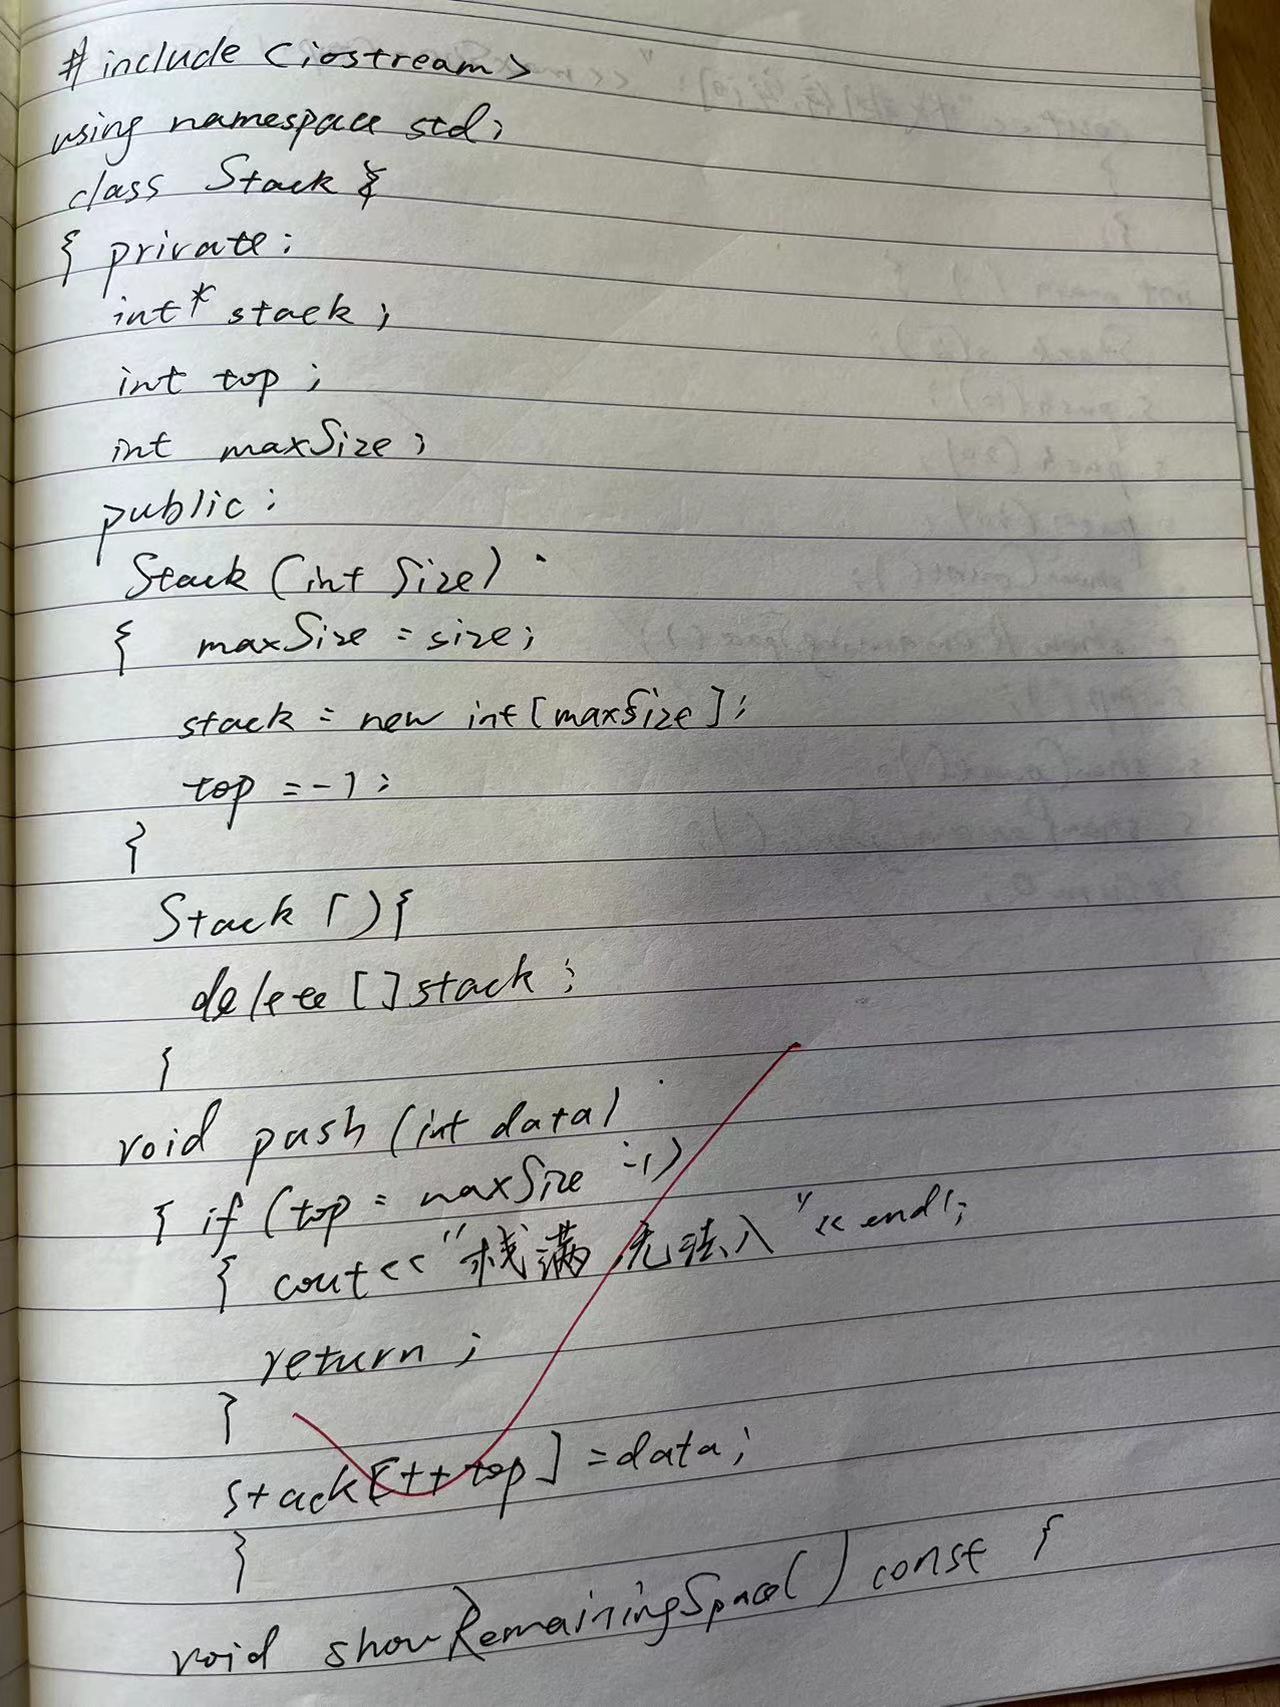 #include <iostream>
using namespace std;
class Stack
{ private:
int* stack;
int top;
int maxSize;
public:
Stack (int Size)
{ maxSize = size;
stack = new int [maxSize];
top = -1;
}
Stack () {
delete [] stack;
}
void push (int data)
{ if (top = maxSize -1)
{ cout << "栈满 无法入" << endl;
return;
}
stack [++top] = data;
}
void showRemainingSpace() const {